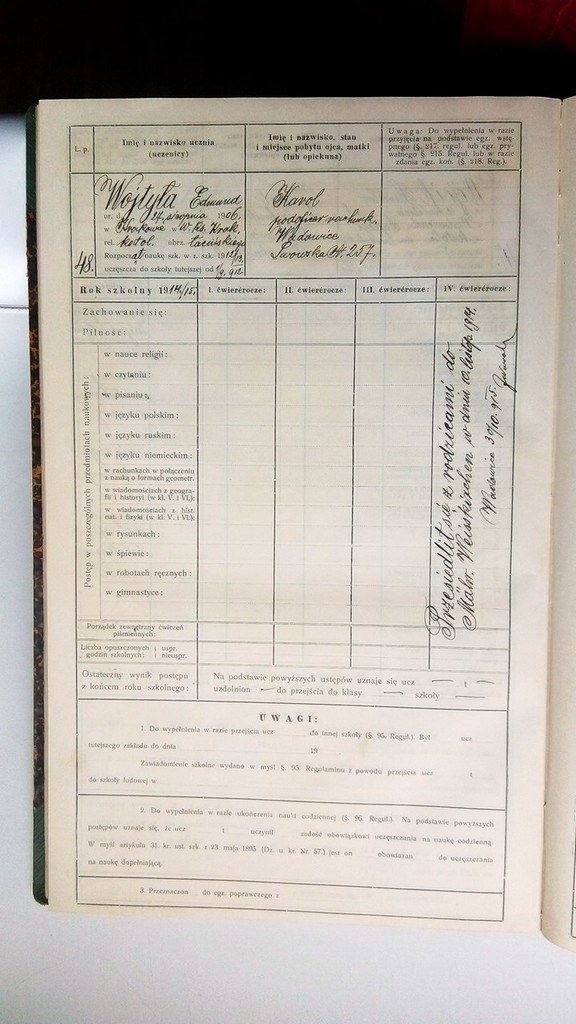 L. p.
Imię i nazwisko ucznia
(uczenicy)
Imię i nazwisko, stan
i miejsce pobytu ojca, matki
(lub opiekuna)
Uwaga: Do wypełnienia w razie
przyjęcia na podstawie egz. wstę-
pnego (§. 217. regul. lub egz. pry-
watnego §. 215. Regul. lub w razie
zdania egz. koń. (§. 218. Reg.).
48.
Wojtyła Edmund
ur. d. 27. sierpnia 1906.
w Krakowie w W. Ks. Krak.
rel. katol. obrz. łacińskiego
Rozpoczął naukę szk. w r. szk. 1912/13.
uczęszcza do szkoły tutejszej od 1/9. 912.
Karol
podoficer rachunk.
Wadowice
Lwowska H. 257.
Rok szkolny 1914/15.
I. ćwierćrocze:
II. ćwierćrocze:
III. ćwierćrocze:
IV. ćwierćrocze:
Zachowanie się:
Pilność:
Postęp w poszczególnych przedmiotach naukowych:
w nauce religii:
w czytaniu:
w pisaniu:
w języku polskim:
w języku ruskim:
w języku niemieckim:
w rachunkach w połączeniu
z nauką o formach geometr.
w wiadomościach z geogra-
fii i historyi (w kl. V. i VI.):
w wiadomościach z hist.
nat. i fizyki (w kl. V. i VI.):
w rysunkach:
w śpiewie:
w robotach ręcznych:
w gimnastyce:
Przesiedlił się z rodzicami do
Mähr. Weisskirchen w dniu 10. listop. 1914.
Wadowice 30/10. 915.
Porządek zewnętrzny ćwiczeń
piśmiennych:
Liczba opuszczonych
godzin szkolnych:
uspr.
nieuspr.
Ostateczny wynik postępu
z końcem roku szkolnego:
Na podstawie powyższych ustępów uznaje się ucz — t —
uzdolnion — do przejścia do klasy — szkoły —
UWAGI:
1. Do wypełnienia w razie przejścia ucz do innej szkoły (§. 95. Regul.). Był ucz
tutejszego zakładu do dnia 19 .
Zawiadomienie szkolne wydano w myśl §. 95. Regulaminu z powodu przejścia ucz t
do szkoły ludowej w
2. Do wypełnienia w razie ukończenia nauki codziennej (§. 96. Regul.). Na podstawie powyższych
postępów uznaje się, że ucz t uczynił zadość obowiązkowi uczęszczania na naukę codzienną.
W myśl artykułu 31. kr. ust. szk. z 23. maja 1895 (Dz. u. kr. Nr. 57.) jest on obowiązan do uczęszczania
na naukę dopełniającą.
3. Przeznaczon do egz. poprawczego z